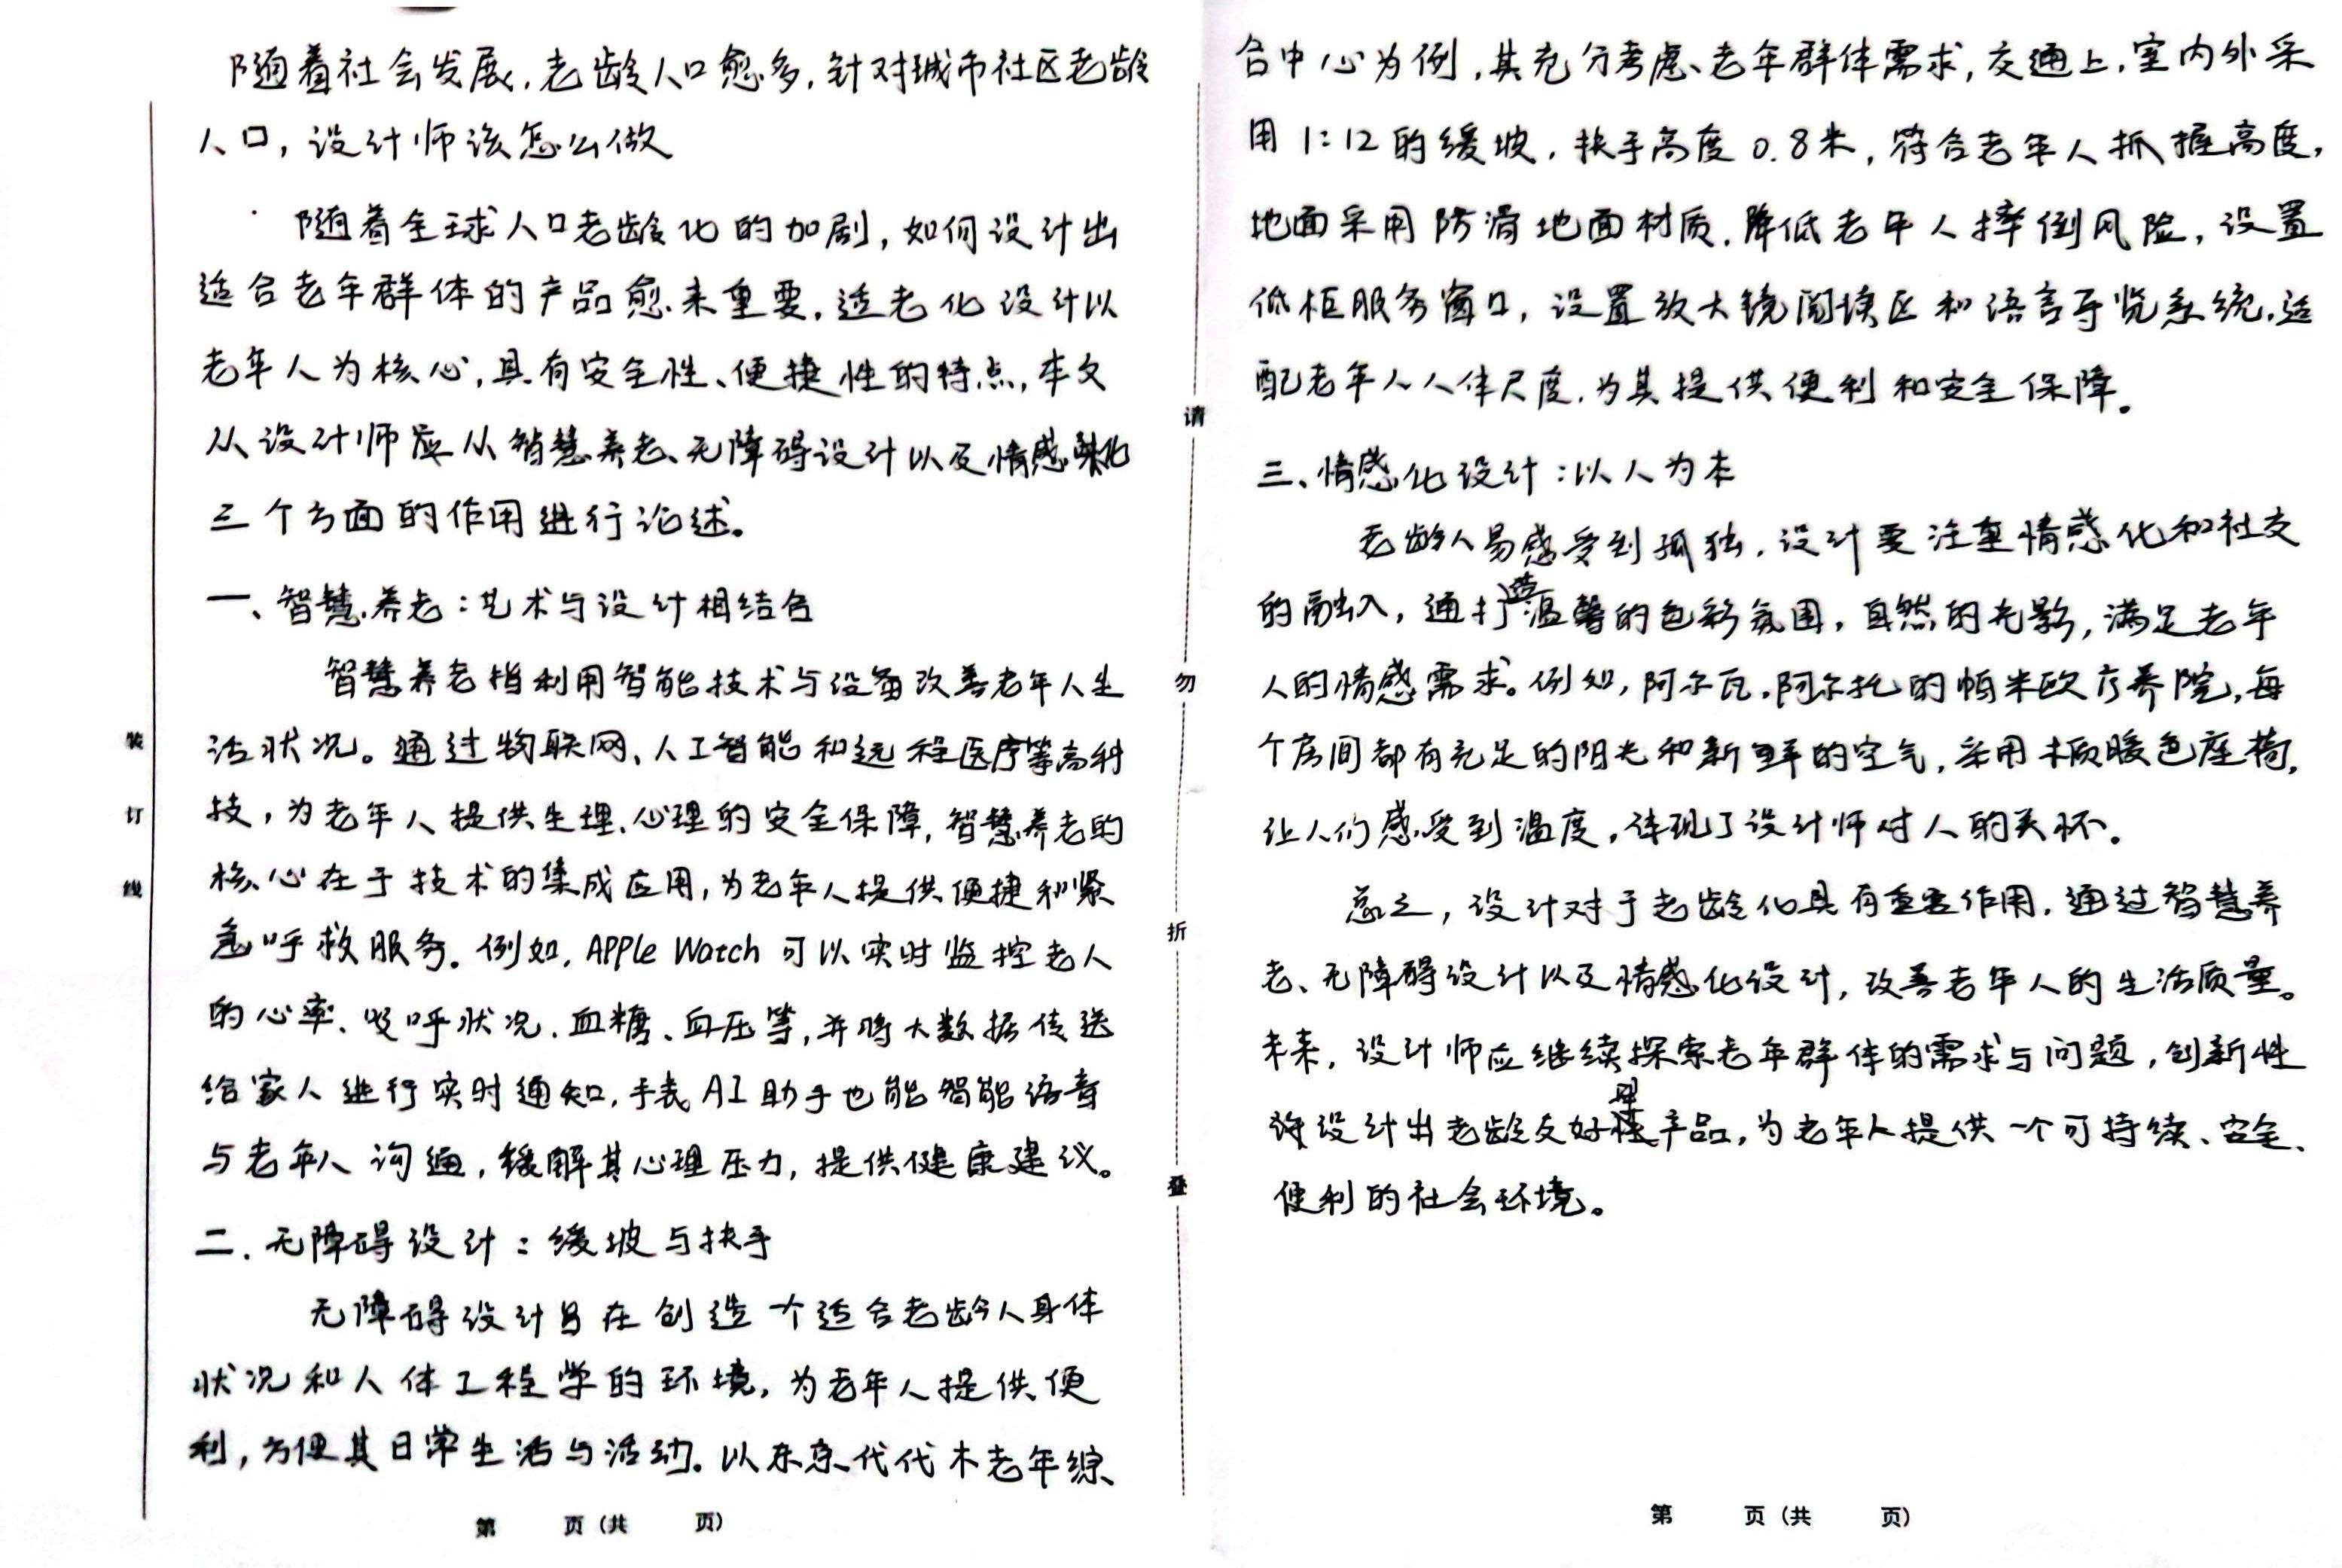 随着社会发展,老龄人口愈多,针对城市社区老龄
人口,设计师该怎么做
随着全球人口老龄化的加剧,如何设计出
适合老年群体的产品愈来重要,适老化设计以
老年人为核心,具有安全性、便捷性的特点,本文
从设计师应从智慧养老、无障碍设计以及情感化
三个方面的作用进行论述。
一、智慧养老:艺术与设计相结合
智慧养老指利用智能技术与设备改善老年人生
活状况。通过物联网、人工智能和远程医疗等高科
技,为老年人提供生理、心理的安全保障,智慧养老的
核心在于技术的集成应用,为老年人提供便捷和紧
急呼救服务。例如,APPle Watch可以实时监控老人
的心率、吸呼状况、血糖、血压等,并将大数据传送
给家人进行实时通知,手表AI助手也能智能语音
与老年人沟通,缓解其心理压力,提供健康建议。
二.无障碍设计:缓坡与扶手
无障碍设计旨在创造一个适合老龄人身体
状况和人体工程学的环境,为老年人提供便
利,方便其日常生活与活动。以东京代代木老年综
合中心为例,其充分考虑老年群体需求,交通上,室内外采
用1:12的缓坡,扶手高度0.8米,符合老年人抓握高度,
地面采用防滑地面材质,降低老年人摔倒风险,设置
低柜服务窗口,设置放大镜阅读区和语言导览系统,适
配老年人人体尺度,为其提供便利和安全保障。
三、情感化设计:以人为本
老龄人易感受到孤独,设计要注重情感化和社交
的融入,通打造温馨的色彩氛围,自然的光影,满足老年
人的情感需求。例如,阿尔瓦.阿尔托的帕米欧疗养院,每
个房间都有充足的阳光和新鲜的空气,采用木质暖色座椅,
让人们感受到温度,体现了设计师对人的关怀。
总之,设计对于老龄化具有重要作用,通过智慧养
老、无障碍设计以及情感化设计,改善老年人的生活质量。
未来,设计师应继续探索老年群体的需求与问题,创新性
设计出老龄友好型产品,为老年人提供一个可持续、安全、
便利的社会环境。
装
订
线
请
勿
折
叠
第 页(共 页)
第 页(共 页)